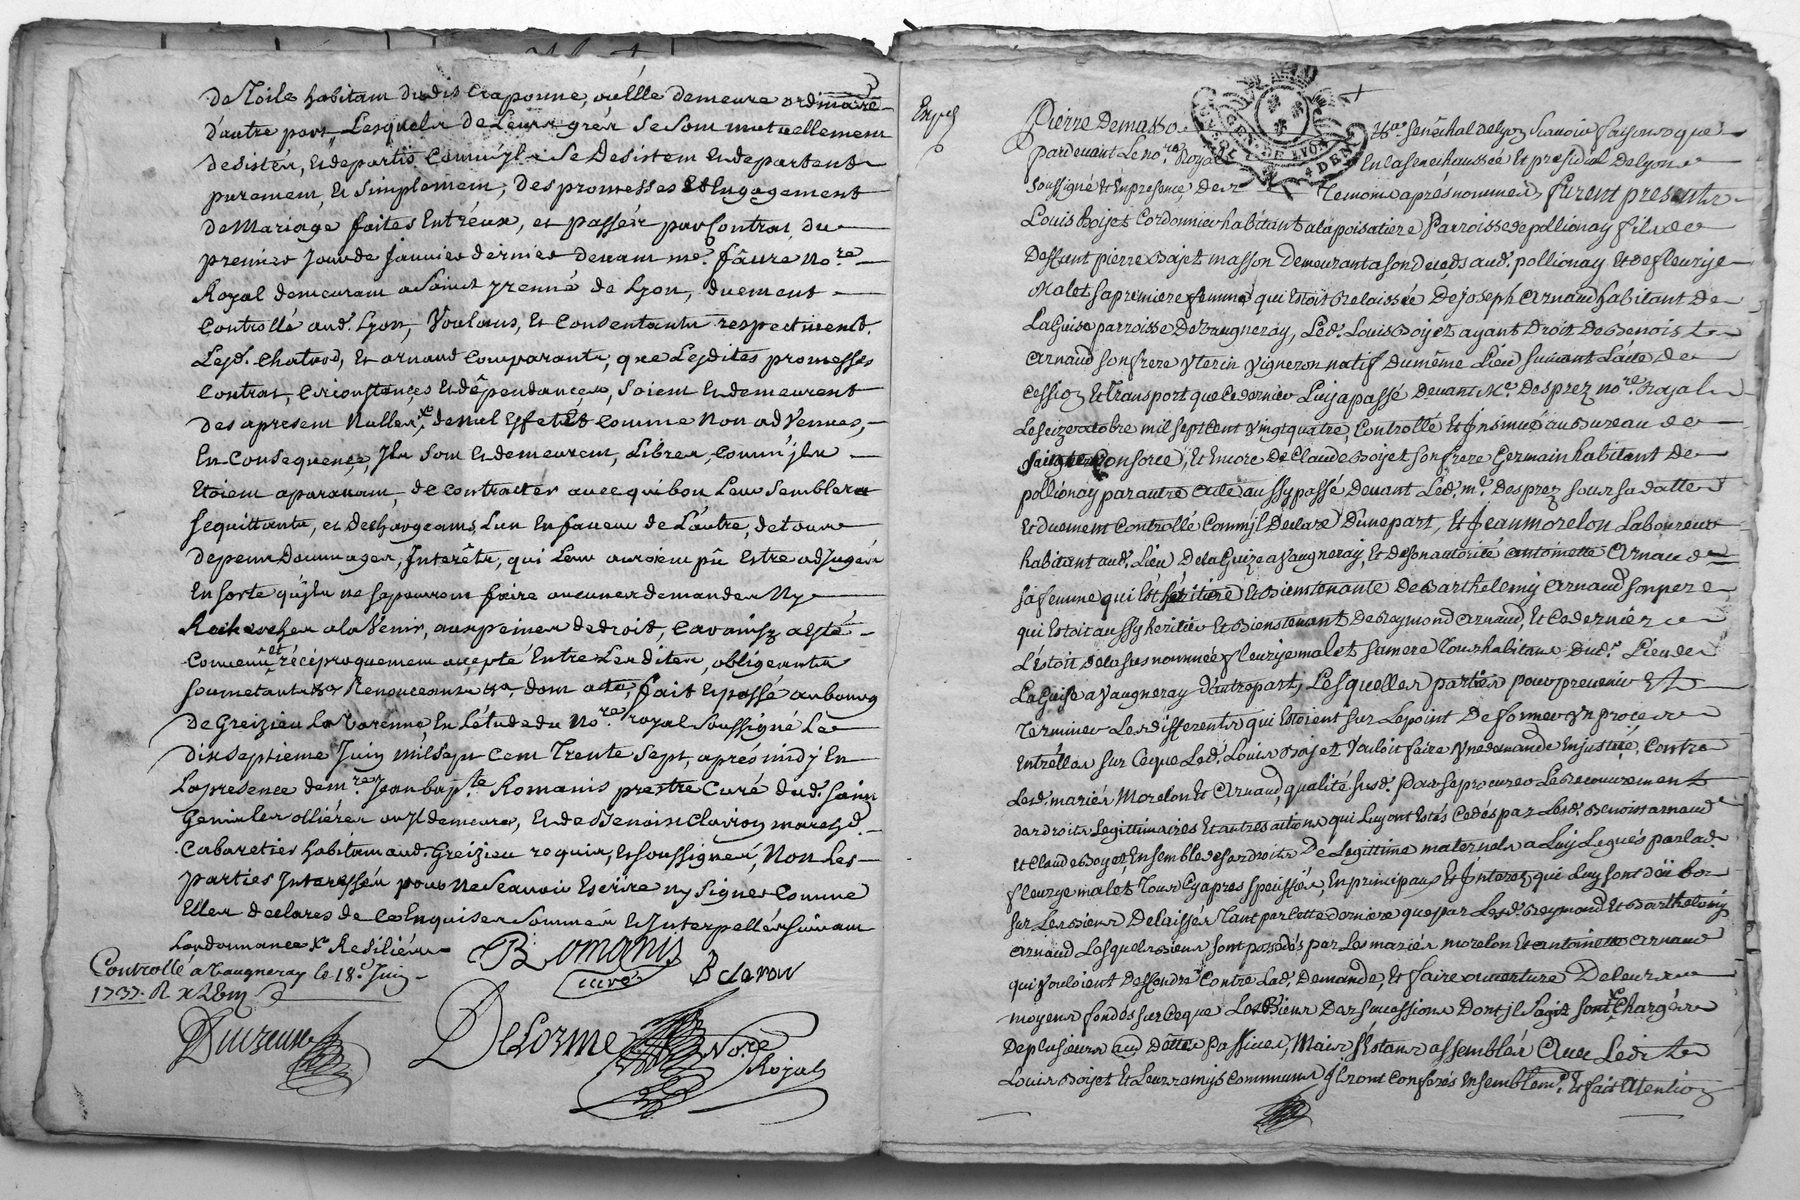 de Toile habitant dudit Craponne, ou elle demeure ordinaire
d'autre part, Lesquels de Leurs grés se sont mutuellement
desistés, et departis comm'jls se desistent et departent
purement, et simplement, des promesses et Engagement
de Mariage faites Entréux, et passés par Contrat du
premier Jour de Janvier dernier devant me. fâure no.re
Royal demeurant a Saint yrenné de Lyon, duement
Controllé aud. Lyon, Voulans, et Consentants respectivemt.
Lesd. Chatrod, et arnaud Comparants, que Lesdites promesses
Contrat, Circonstances et dépendances, soient et demeurent
des apresent Nulles, de nul Effet et Comme Non advenues,
En Consequence, Jls sont et demeurent, Libres, Comm'jls
Etoient aparavant, de contracter avec qui bon Leur semblera
sequittants, et dechargeants, Lun En faveur de L'autre, de tous
depens Dommages, Interêts, qui Leur auroient pû Estre adjugés
En sorte qu'jls ne se pourront faire aucunes demandes Ny
Recherches a lavenir, aux peines de droit, Car ainsy a esté
Convenû et réciproquement accepté Entre Lesdites, obligeants
soumetants &a Renonceants &a, dont acte, fait Et passé au bourg
de Greizieu La Varenne, En L'étude du No.re royal soussigné Le
dixseptieme Juin mil sept Cent Trente sept, aprés midy En
La presence de m.re Jean bap.te Romanis prestre Curé dud. Saint
Genis les ollières ou Jl demeure, et de Benoist Clavion march.d
Cabaretier habitant aud. Greizieu requis, et soussignés, Non Les
parties Interessés pour Ne Scavoir Escrire ny Signer Comme
Elles declares de ce Enquises Sommés et Interpellés suivant
Lordonnance &c Resiliés
Romanis
curé
B clavon
Controllé a Vaugneray le 18.e Juin
1737. R
Delorme
No.re
Royal
Pierre Demasso
&a Senéchal de Lyon scavoir faisons que
Pardevant Le no.re Royal
En la senechaussée Et presidial de Lyon
soussigné Et En presence des
Temoins aprés nommés, furent presents
Louis Boyet Cordonnier habitant a la poisatiere Parroisse de pollionay fils de
Deffunt pierre Bojet masson Demeurant a son deceds aud. pollionay Et de fleurye
Malet sa premiere femme qui Estoit Relaissée De joseph Arnaud habitant de
La Guise parroisse De Vaugneray, Led. Louis Boyet ayant Droit de Benoist
Arnaud son frere Vterin Vigneron natif Du même Lieu suivant L'acte de
Cession Et Transport que Ce dernier Luy a passé Devant Me. Desprez no.re Royal
Le seize octobre mil sept Cent Vingt quatre, Controllé Et Insinué au Bureau de
Sainte Consorce, Et Encore De Claude Boyet son frere Germain habitant De
pollionay par autre acte aussy passé Devant Led. m.e Desprez sous sa datte
Et Duement Controllé Comm'jl Declare D'une part, Et Jean morelon Laboureur
habitant aud. Lieu De La Guize a Vaugneray, Et de son autorité antoinette Arnaud
sa femme qui Est héritiere Et Bientenante De Barthelemy Arnaud son pere
qui Estoit aussy heritier Et Bienstenant De Reymond Arnaud, Et Ce dernier
L'éstoit De la sus nommée fleurye malet sa mere Tous habitans Dud.t Lieu de
La Guise a Vaugneray D'autre part, Lesquelles parties pour prevenir Et
Terminer Les differents qui Estoient sur Le point De former Vn procès
Entr'elles sur Ceque Led. Louis Bojet Vouloit faire Vne demande En justice, Contre
Lesd. mariés Morelon Et Arnaud, qualité susd. Pour se procurer Le Recouvrement
Des droits Legittimaires Et autres actions qui Luy ont Estés Cedés par Lesd. Benoist arnaud
Et Claude Boyet, Ensemble Les droits De Legittime maternels a Luy Legués par Lad.
fleurye malet Tous Cy apres speciffiés, En principaux Et Interez qui Luy sont dûs
sur Les Biens Delaissés Tant par Cette derniere que par Lesd. Reymond Et Barthelemy
Arnaud Lesquels Biens sont possedés par Les mariés morelon Et antoinette arnaud
qui Vouloient Deffendre Contre Lad. Demande, Et faire ouverture De Leurs
moyens fondés sur Ceque Les Biens Des successions Dont jl s'agit sont Chargés
De plusieurs aud. Dettes Passives, Mais s'Estans assemblés Avec Ledit
Louis Boyet Et Leurs amis Communs Jls ont Conferés Ensemblem.t Et fait attention